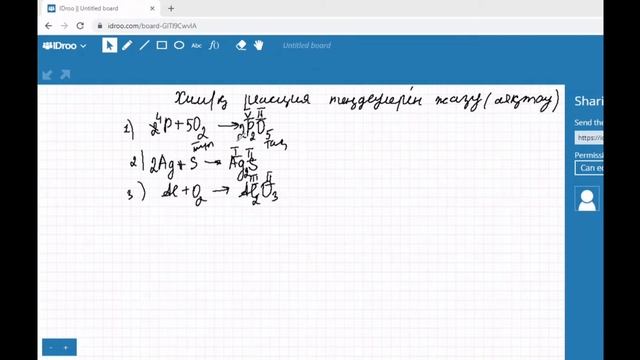 IDroo || Untitled board
idroo.com/board-GITl9CwvIA
IDroo
Untitled board
Химиялық реакция теңдеулерін жазу (аяқтау)
1) 2⁴P + 5O₂ → 2P₂O₅
V II
2) 2Ag + S → Ag₂S
I II
3) Al + O₂ → Al₂O₃
III II
Shari
Send the
https://i
Permissi
Can ed
- +